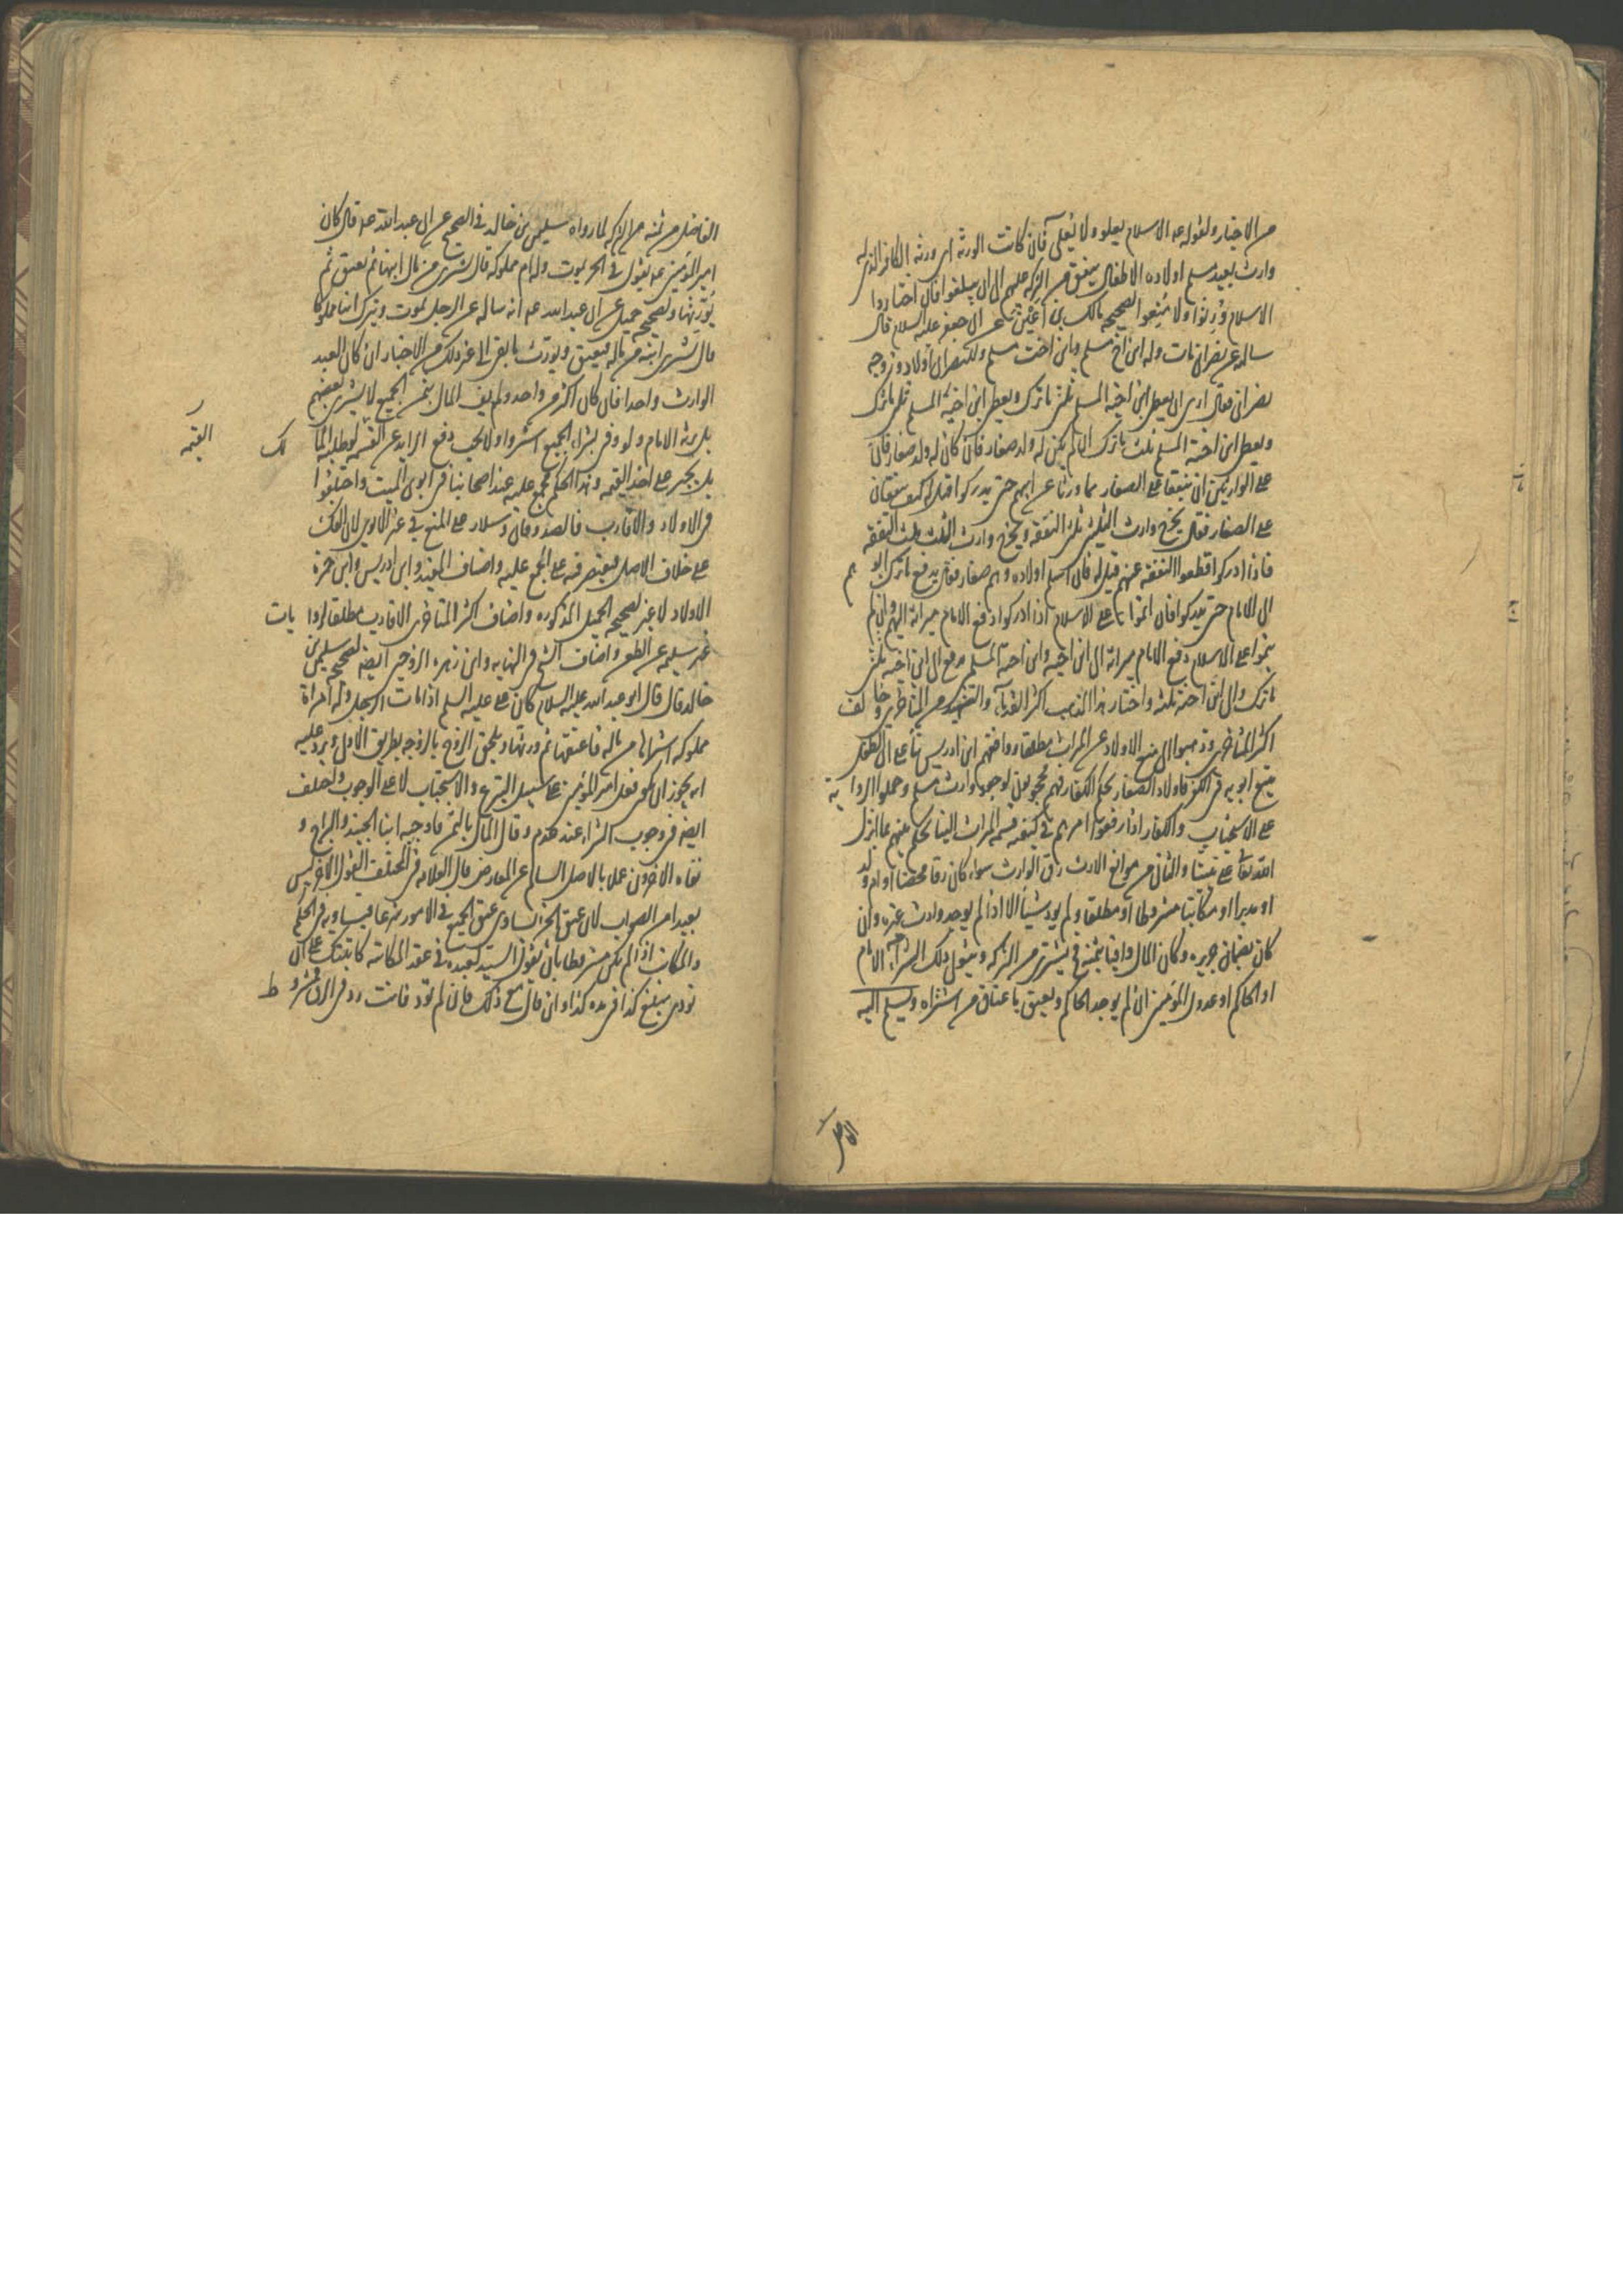 من الاخبار ولقوله عه الاسلام يعلو ولا يُعلى فان كانت الورثة اى ورثة الكافر الذى له
وارث بعيد مسلم اولاده الاطفال ينفق من التركه عليهم الى ان يبلغوا فان اختاروا
الاسلام وُرِثوا والا مُنِعوا لصحيحه مالك بن اعين عن ابى جعفر عليه السلام قال
ساله عن نصرانى مات وله ابن اخ مسلم وابن اخت مسلم وللنصرانى اولاد وزوجه
نصرانى فقال ارى ان يعطى ابن اخيه المسلم ثلثى ما ترك ويعطى ابن اخته المسلم ثلث ما ترك
ويعطى ابن اخته المسلم ثلث ما ترك ان لم يكن له ولد صغار فان كان له ولد صغار فان
على الوارثين ان ينفقا على الصغار مما ورثا عن ابيهم حتى يدركوا قيل له كيف ينفقان
على الصغار فقال يخرج وارث الثلثين ثلثى النفقه ويخرج وارث الثلث ثلث النفقه
فاذا ادركوا قطعوا النفقه عنهم قيل له فان اسلم اولاده وهم صغار فقال يدفع ما ترك ابو هم
الى الامام حتى يدركوا فان اتموا على الاسلام اذا ادركوا دفع الامام ميراثه اليهم وان لم
يتموا على الاسلام دفع الامام ميراثه الى ابن اخيه وابن اخته المسلم يدفع الى ابن اخيه ثلثى
ما ترك والى ابن اخته ثلثه واختار هذا المذهب اكثر القدماء والشهيد من المتاخرين وخا لف
اكثر المتاخرين وذهبوا الى منع الاولاد عن الميراث مطلقا ووافقهم ابن ادريس بناء على ان الطفل
يتبع ابويه فى الكفر فاولاد الصغار بحكم الكفار فهم محجوبون لوجود وارث مسلم وحملوا الروا يه
على الاستحباب والكفار اذا رفعوا امرهم فى كيفيه قسمه الميراث الينا نحكم بينهم بما انزل
الله تعالى على نبينا والثانى من موانع الارث رق الوارث سواء كان رقا محضا او ام ولد
او مدبرا او مكاتبا مشروطا او مطلقا ولم يود شيئا الا اذا لم يوجد وارث غيره وان
كان بضمان جريره وكان المال وافيا بثمنه فيشترى من التركه ويتولى ذلك الشراء الامام
او الحاكم او عدول المؤمنين ان لم يوجد الحاكم ويعتق باعتاق من اشتراه ويسلم اليه
الفاضل
الفاضل من ثمنه من التركه لما رواه سليمن بن خالد فى الصحيح عن ابى عبد الله عه قال كان
امير المؤمنين عه يقول فى الحر يموت وله ام مملوكه قال تشترى من مال ابنها ثم تعتق ثم
يُورّثها ولصحيحه جميل عن ابى عبد الله عه انه ساله عن الرجل يموت ويترك ابنا مملوكا
قال يشترى ابنه من ماله فيعتق ويورث ما بقى الى غير ذلك من الاخبار ان كان العبد
الوارث واحدا فان كان اكثر من واحد ولم يف المال بثمن الجميع لا يشترى بعضهم
بل يرثه الامام ولو وفى بشراء الجميع اشتروا ولا يجب دفع الزايد عن القيمه لو طلبه الما لك
القيمه
بل يجبر على اخذ القيمه وهذا الحكم مجمع عليه عند اصحابنا فى ابوى الميت واختلفوا
فى الاولاد والاقارب فالصدوقان وسلار على المنع فى غير الابوين لان الفك
على خلاف الاصل فيقتصر فيه على المجمع عليه واضاف المفيد وابن ادريس وابن حمزه
الاولاد لا غير لصحيحه الجميل المذكوره واضاف اكثر المتاخرين الاقارب مطلقا لروا يات
غير سليمه عن الطعن واضاف الشيخ فى النهايه وابن زهره الزوجين ايضا لصحيحه سليمن بن
خالد قال قال ابو عبد الله عليه السلام كان على عليه السلم اذا مات الرجل وله امراة
مملوكه اشتراها من ماله فاعتقها ثم ورثها ويلحق الزوج بالزوجه بطريق الاولى ويرد عليه
انه يجوز ان يكون فعل امير المؤمنين على سبيل التبرع والاستحباب لا على الوجوب واختلف
ايضا فى وجوب الشراء عند عدم وفاء المال بالثمن فاوجبه ابنا الجنيد والبراج و
نفاه الاخرون عملا بالاصل السالم عن المعارض قال العلامه فى المختلف القول الاخر ليس
بعيدا من الصواب لان عتق الجزء يساوى عتق الجميع فى الامور شرعا فيتساويه فى الحكم
والمكاتب اذا لم يكن مشروطا بان يقول السيد لعبده فى عقد المكاتبه كاتبتك على ان
تودى مبلغ كذا فى مده كذا وان قال مع ذلك فان لم تؤد فانت رد فى الرق فمشرو ط